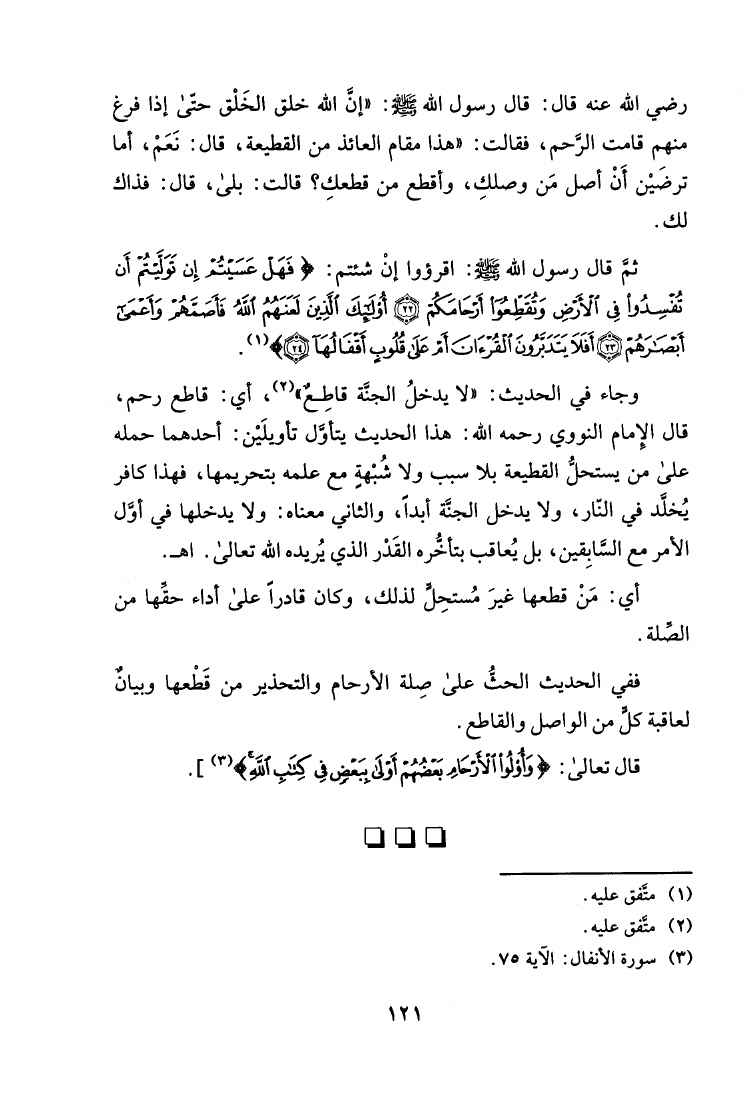 رضي الله عنه قال: قال رسول الله ﷺ: «إنَّ الله خلق الخَلْق حتّىٰ إذا فرغ
منهم قامت الرَّحم، فقالت: «هذا مقام العائذ من القطيعة، قال: نَعَمْ، أما
ترضَيْن أَنْ أصل مَن وصلكِ، وأقطع من قطعكِ؟ قالت: بلىٰ، قال: فذاك
لك.
ثمَّ قال رسول الله ﷺ: اقرؤوا إنْ شئتم: ﴿ فَهَلْ عَسَيْتُمْ إِن تَوَلَّيْتُمْ أَن
تُفْسِدُوا۟ فِى ٱلْأَرْضِ وَتُقَطِّعُوٓا۟ أَرْحَامَكُمْ ۝٢٢ أُو۟لَٰٓئِكَ ٱلَّذِينَ لَعَنَهُمُ ٱللَّهُ فَأَصَمَّهُمْ وَأَعْمَىٰٓ
أَبْصَٰرَهُمْ ۝٢٣ أَفَلَا يَتَدَبَّرُونَ ٱلْقُرْءَانَ أَمْ عَلَىٰ قُلُوبٍ أَقْفَالُهَآ ۝٢٤﴾(١).
وجاء في الحديث: «لا يدخلُ الجنَّة قاطِعٌ»(٢)، أي: قاطع رحم،
قال الإمام النووي رحمه الله: هذا الحديث يتأوَّل تأويلَيْن: أحدهما حمله
علىٰ من يستحلُّ القطيعة بلا سبب ولا شُبْهةٍ مع علمه بتحريمها، فهذا كافر
يُخلَّد في النّار، ولا يدخل الجنَّة أبداً، والثاني معناه: ولا يدخلها في أوَّل
الأمر مع السَّابِقين، بل يُعاقب بتأخُّره القَدْر الذي يُريده الله تعالىٰ. اهـ.
أي: مَنْ قطعها غيرَ مُستحِلٍّ لذلك، وكان قادراً علىٰ أداء حقِّها من
الصِّلة.
ففي الحديث الحثُّ علىٰ صِلة الأرحام والتحذير من قَطْعها وبيانٌ
لعاقبة كلٍّ من الواصل والقاطع.
قال تعالىٰ: ﴿ وَأُو۟لُوا۟ ٱلْأَرْحَامِ بَعْضُهُمْ أَوْلَىٰ بِبَعْضٍ فِى كِتَٰبِ ٱللَّهِ ۚ﴾(٣) ].
(١) متَّفق عليه.
(٢) متَّفق عليه.
(٣) سورة الأنفال: الآية ٧٥.
١٢١